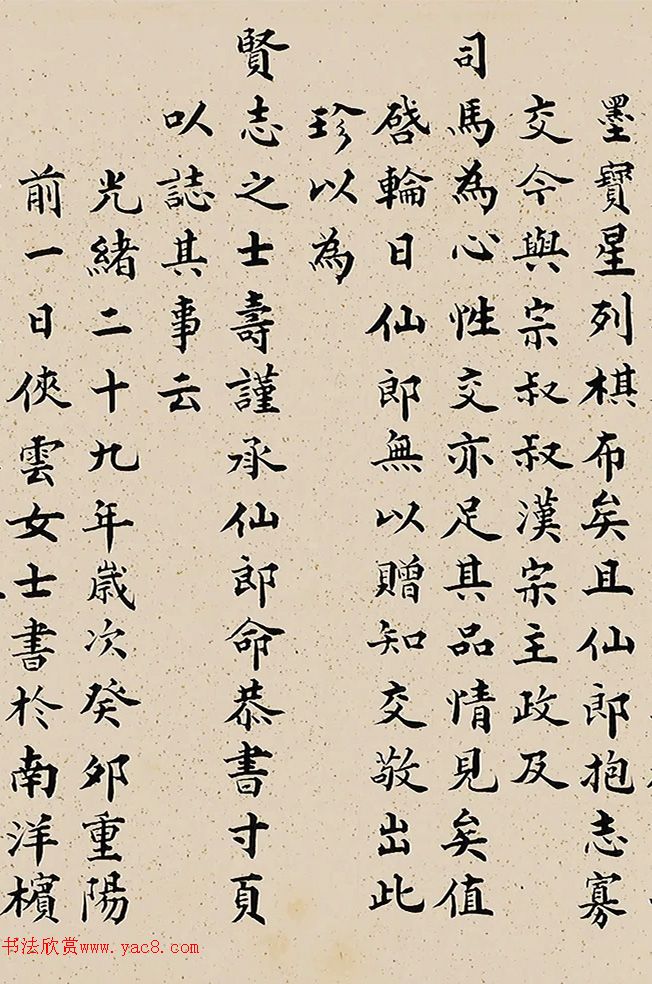 墨寶星列棋布矣且仙郎抱志寡
交今與宗叔叔漢宗主政及
司馬為心性交亦足其品情見矣值
啓輪日仙郎無以贈知交敬出此
珍以為
賢志之士壽謹承仙郎命恭書寸頁
以誌其事云
光緒二十九年歲次癸卯重陽
前一日俠雲女士書於南洋檳
书法欣赏www.yac8.com